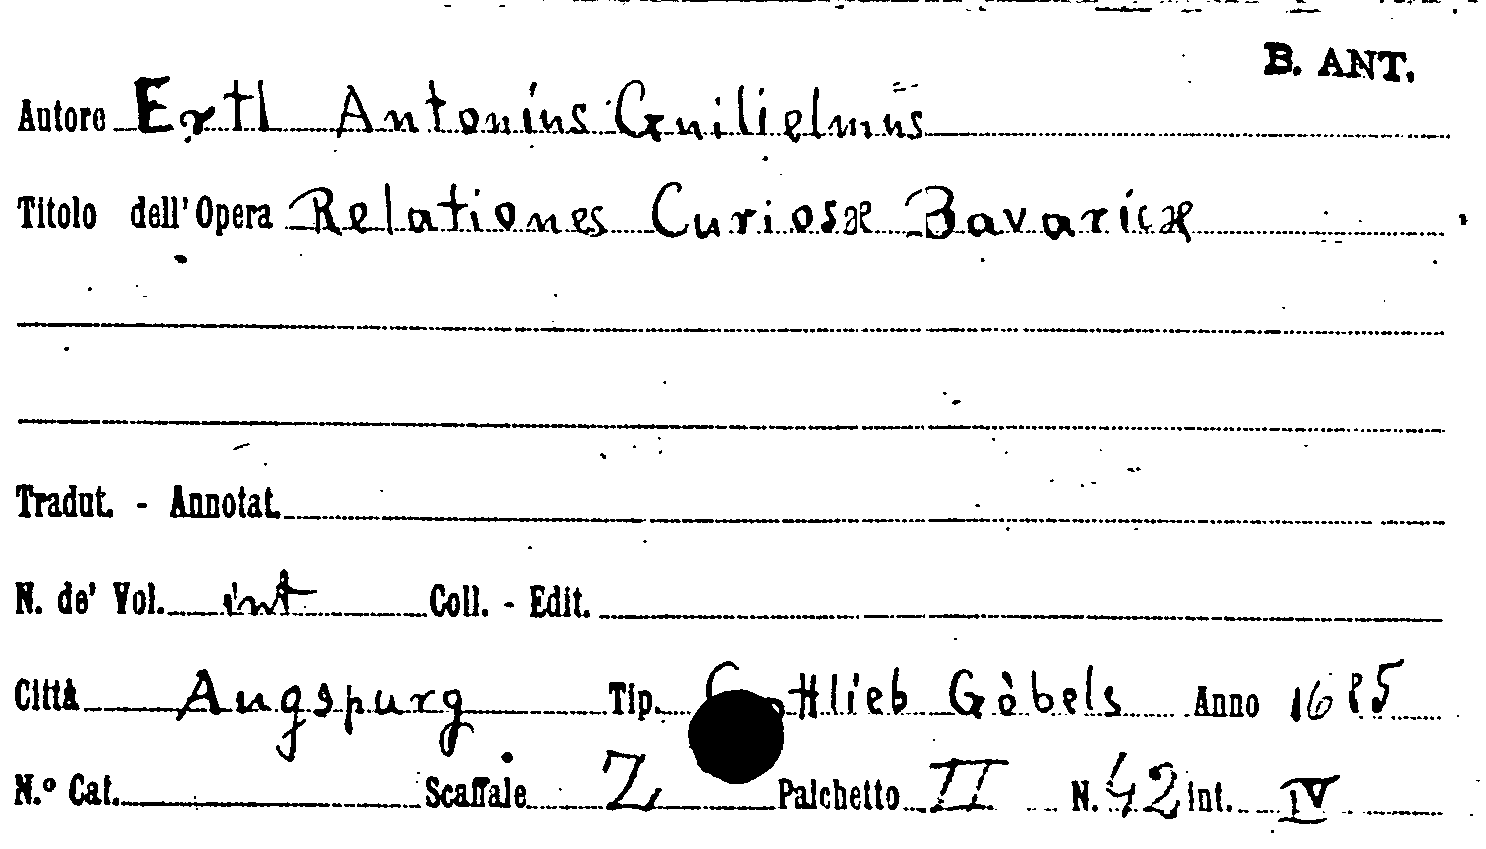 B. ANT.
Autore Ertl Antonius Guilielmus
Titolo dell' Opera Relationes Curiosæ Bavaricæ
Tradut. - Annotat.
N. de' Vol. int Coll. - Edit.
Città Augspurg Tip. Gottlieb Göbels Anno 1685
N.º Cat. Scaffale Z Palchetto II N. 42 int. IV